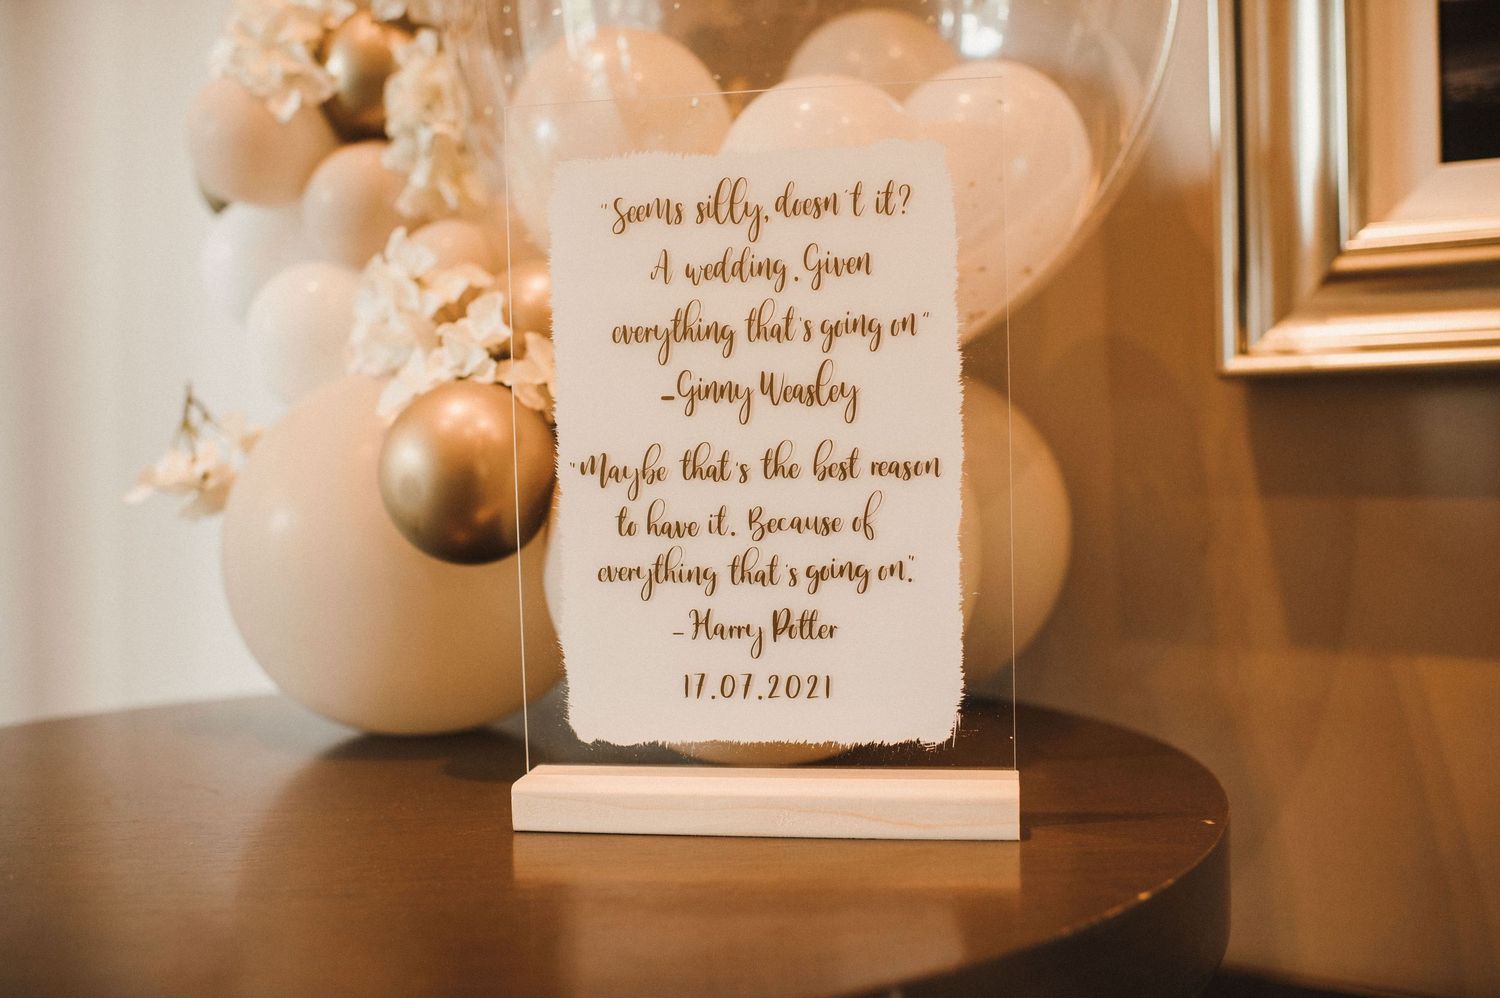 "Seems silly, doesn't it?
A wedding. Given
everything that's going on"
-Ginny Weasley
"Maybe that's the best reason
to have it. Because of
everything that's going on".
-Harry Potter
17.07.2021